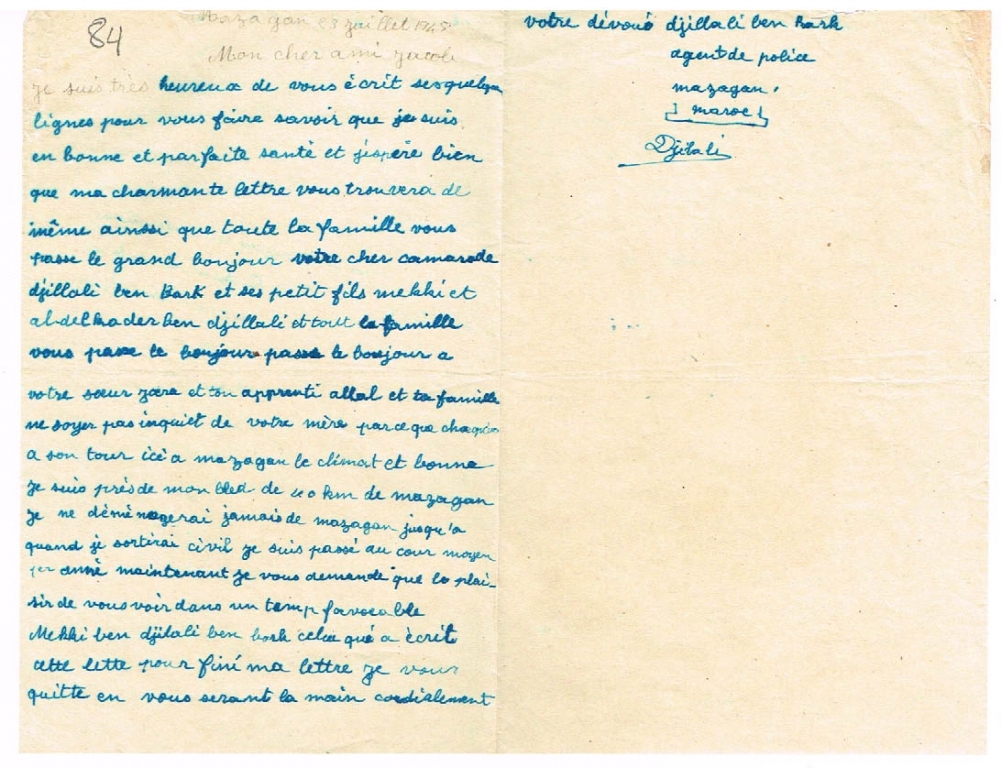 84
Mazagan 23 juillet 1945
Mon cher ami Jacob
je suis très heureux de vous écrit ses quelques
lignes pour vous faire savoir que je suis
en bonne et parfaite santé et j'éspère bien
que ma charmante lettre vous trouvera de
même ainssi que toute la famille vous
passe le grand bonjour votre cher camarade
djillali ben Bark et ses petit fils mekki et
abdelkader ben djillali et tout la famille
vous passe le bonjour passe le bonjour a
votre sœur zara et ton apprenti allal et ta famille
ne soyer pas inquiet de votre mère parce que chaqu'un
a son tour ici a mazagan le climat et bonne
je suis près de mon bled de 40 km de mazagan
je ne déménagerai jamais de mazagan jusqu'a
quand je sortirai civil je suis passé au cour moyen
1er anné maintenant je vous demande que le plai-
sir de vous voir dans un temp favorable
Mekki ben djilali ben bark celui qui a écrit
cette lette pour finé ma lettre je vous
quitte en vous serant la main cordialement
votre dévoué djillali ben Bark
agent de police
mazagan,
maroc
Djilali